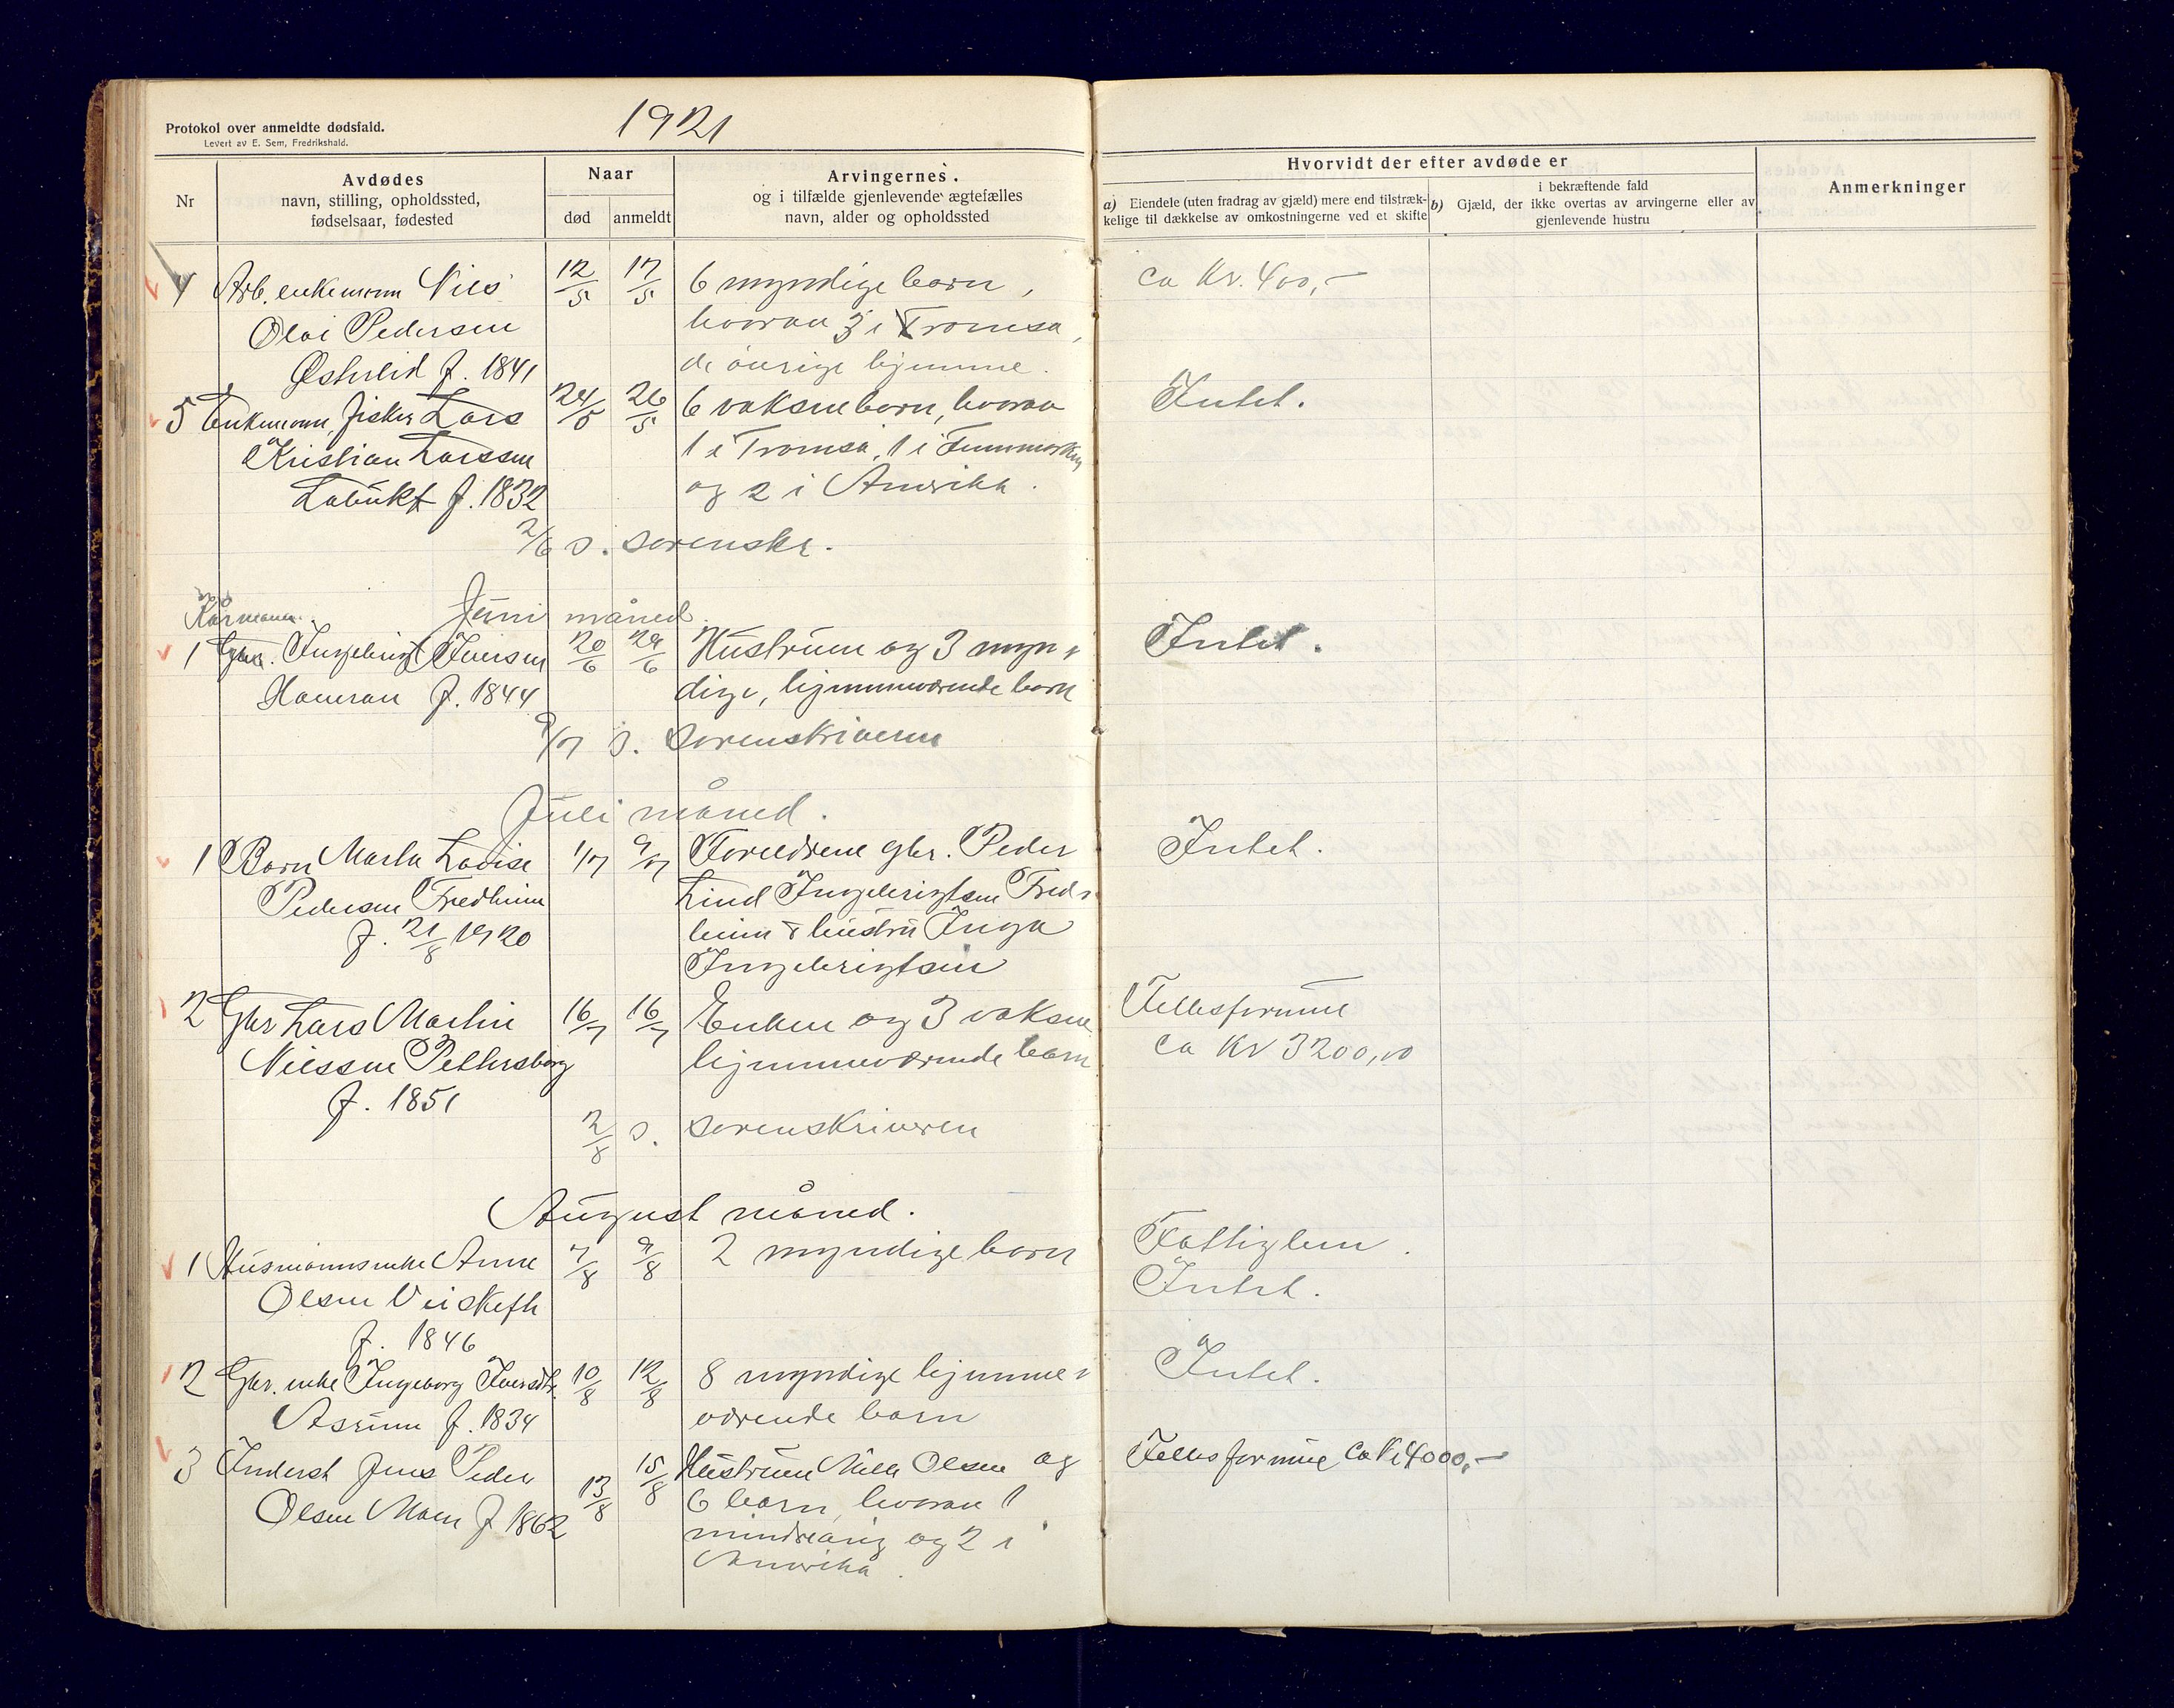 1921
Protokol over anmeldte dødsfald.
Levert av E. Sem, Fredrikshald.
Nr
Avdødes
navn, stilling, opholdssted,
fødselsaar, fødested
Naar
død
anmeldt
Arvingernes.
og i tilfælde gjenlevende ægtefælles
navn, alder og opholdssted
Hvorvidt der efter avdøde er
a) Eiendele (uten fradrag av gjæld) mere end tilstræk-
kelige til dækkelse av omkostningerne ved et skifte
i bekræftende fald
b) Gjæld, der ikke overtas av arvingerne eller av
gjenlevende hustru
Anmerkninger
4 Arb. enkemann Nils 12/5 17/5 6 myndige børn, ca Kr. 400,-
Olai Pedersen hvorav 3 i Tromsø,
f. 1841 de øvrige hjemme.
5 Enkemann, fisker Lars 24/5 26/5 6 voksne børn, hvorav Intet.
Kristian Larssen 1 i Tromsø, 1 i Finnmarken
Labukt f. 1832 og 2 i Amerika.
2/6 s. sorenskr.
Juni måned
Kårmann
1 Ingebrigt Iversen 20/6 29/6 Hustruen og 3 myn- Intet.
f. 1844 dige, hjemmeværende børn
9/7 s. sorenskriveren
Juli måned.
1 Barn Marta Lovise 1/7 9/7 Forældrene gbr. Peder Intet.
Pedersen Fredheim Lind Ingebrigtsen Fred-
f. 21/8 1920 heim & hustru Inga
Ingebrigtsen
2 Gbr Lars Martin 16/7 16/7 Enken og 3 voksne Fellesformue
Nilssen Pettersborg hjemmeværende børn ca Kr 3200,00
f. 1851
2/8 s. sorenskriveren
August måned.
1 Husmannsenke Anne 7/8 9/8 2 myndige børn Fattiglem.
Olsen Intet.
f. 1846
2 Gbr. enke Ingeborg Iversdtr. 10/8 12/8 8 myndige hjemme- Intet.
f. 1834 værende børn
3 Inderst Jens Peder 13/8 15/8 Hustruen Olsen og Fellesformue ca Kr 4000,-
Olsen Moen f 1862 6 børn, hvorav 1
mindreårig og 2 i
Amerika.